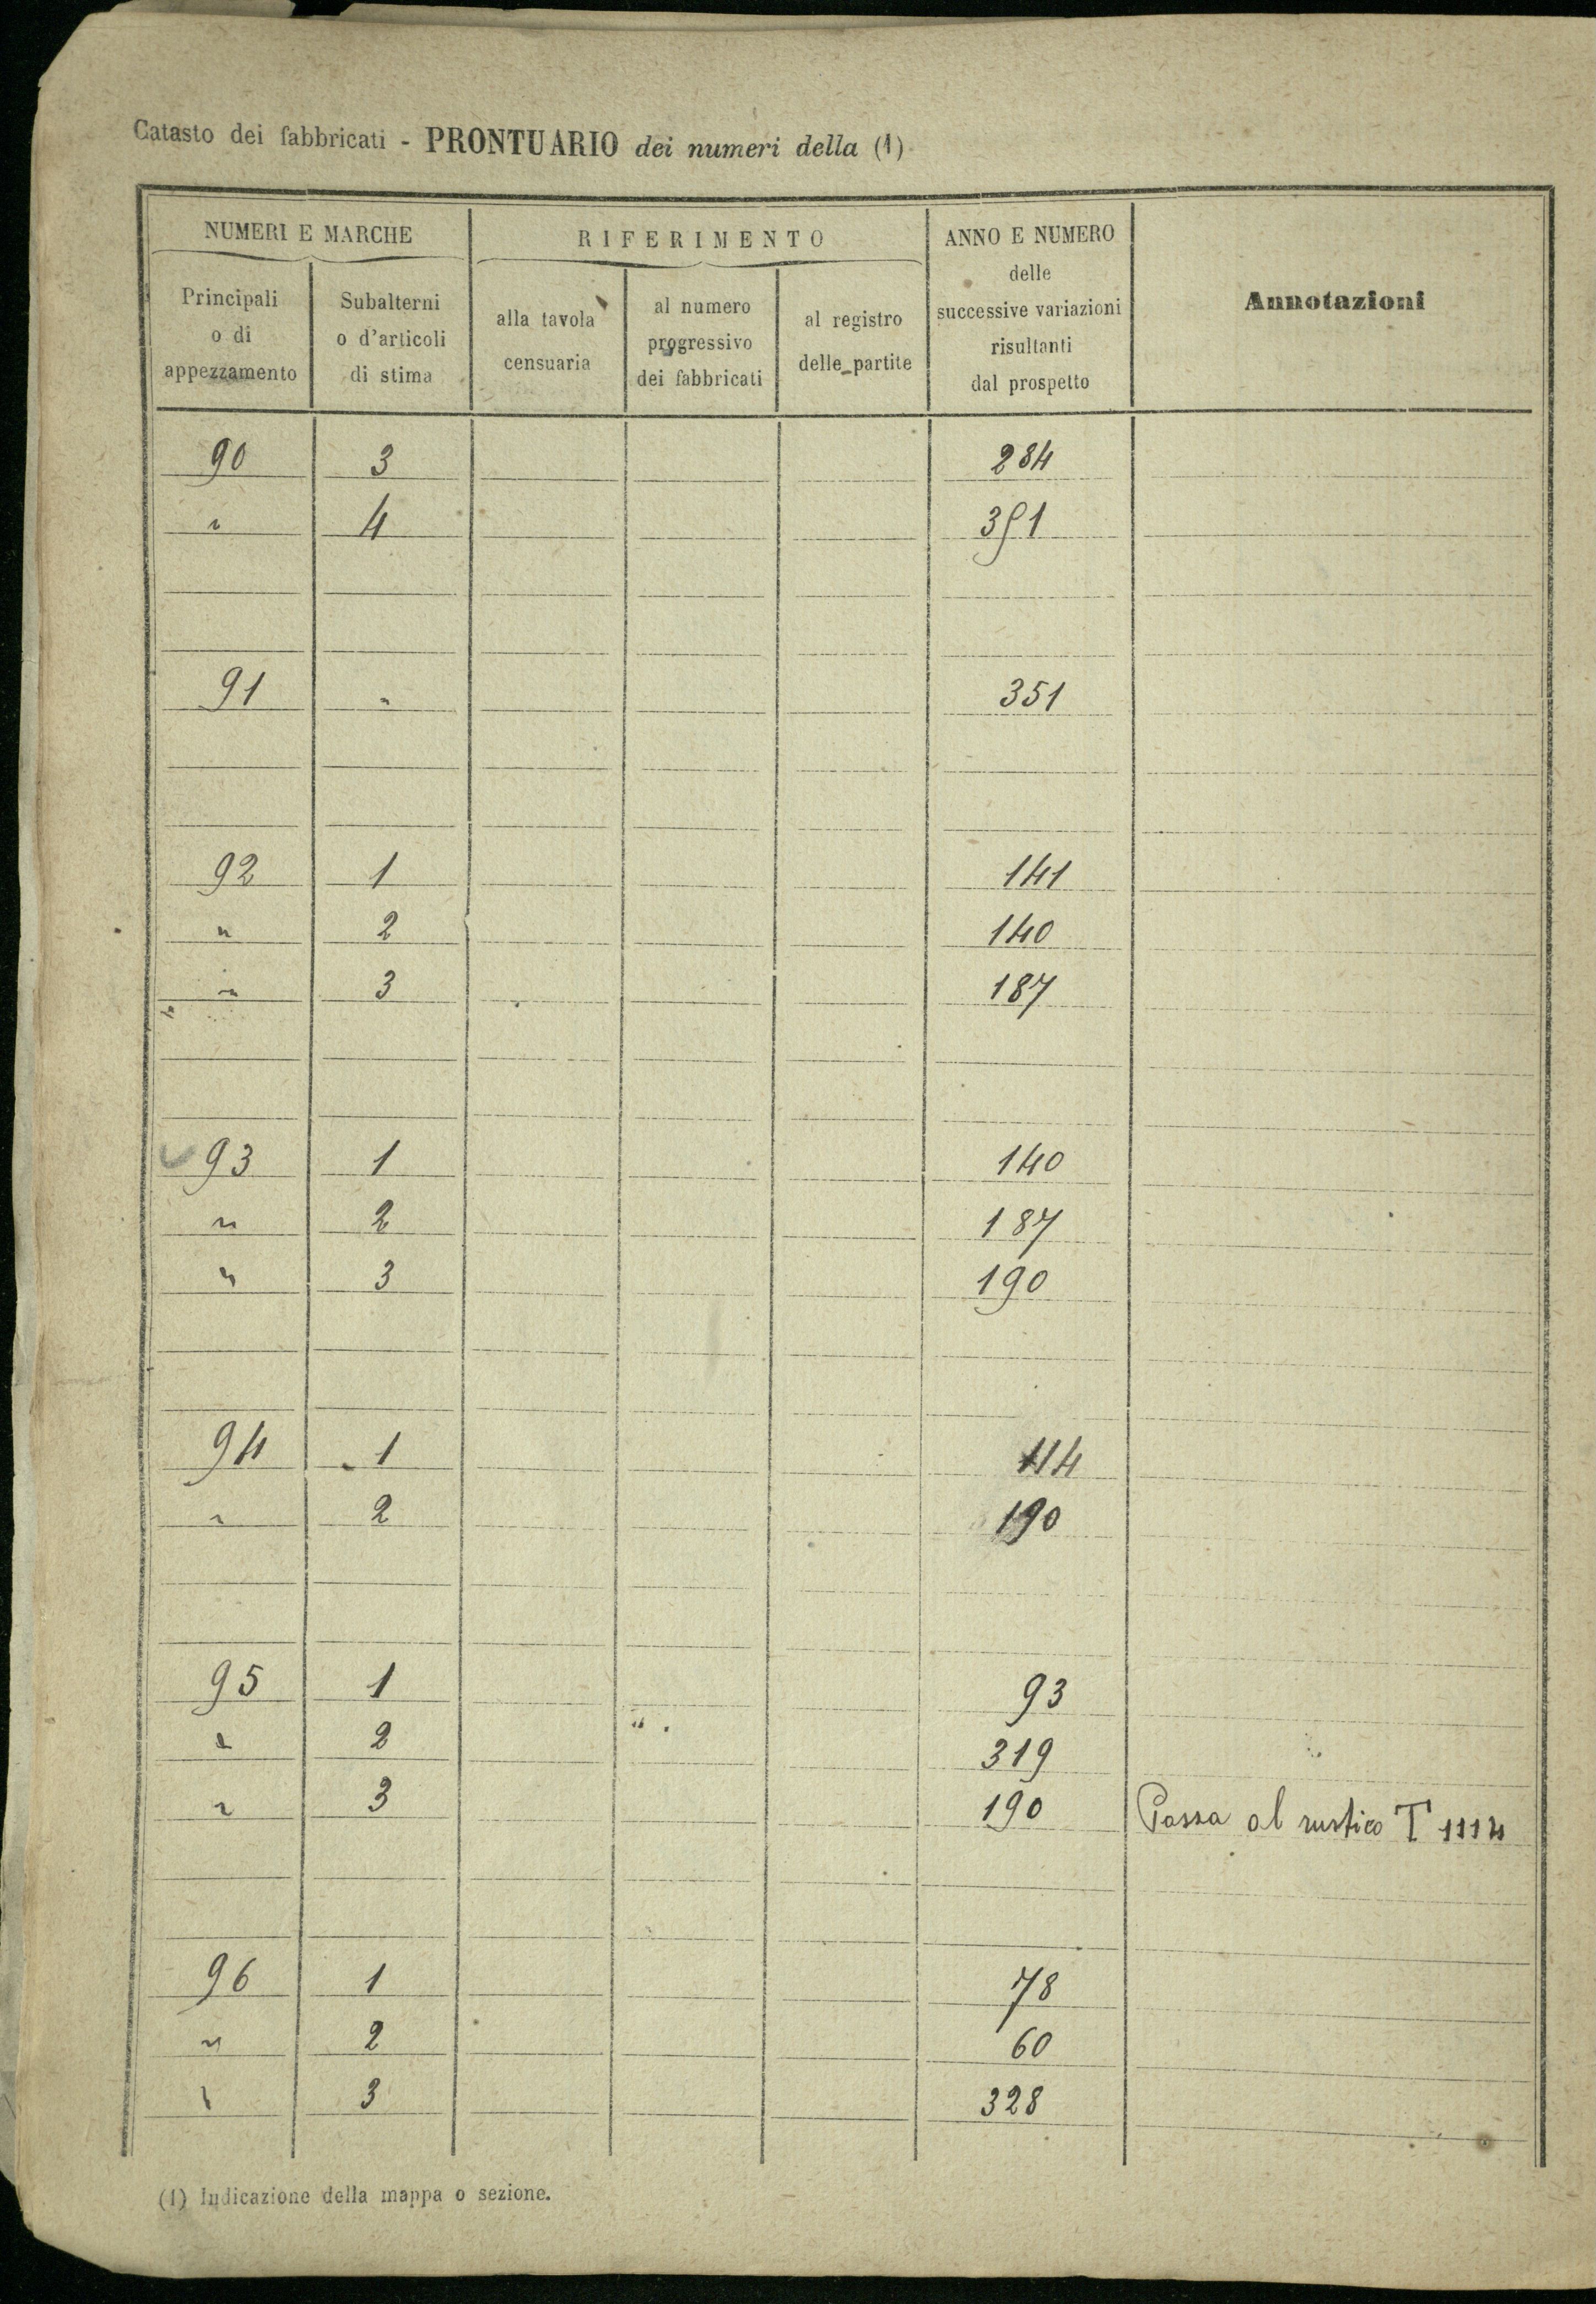 Catasto dei fabbricati - PRONTUARIO dei numeri della (1)
NUMERI E MARCHE
Principali
o di
appezzamento
Subalterni
o d'articoli
di stima
RIFERIMENTO
alla tavola
censuaria
al numero
progressivo
dei fabbricati
al registro
delle partite
ANNO E NUMERO
delle
successive variazioni
risultanti
dal prospetto
Annotazioni
90 3 284
" 4 351
91 " 351
92 1 141
" 2 140
" 3 187
93 1 140
" 2 187
" 3 190
94 1 114
" 2 190
95 1 93
" 2 319
" 3 190 Passa al rustico T 1114
96 1 78
" 2 60
" 3 328
(1) Indicazione della mappa o sezione.